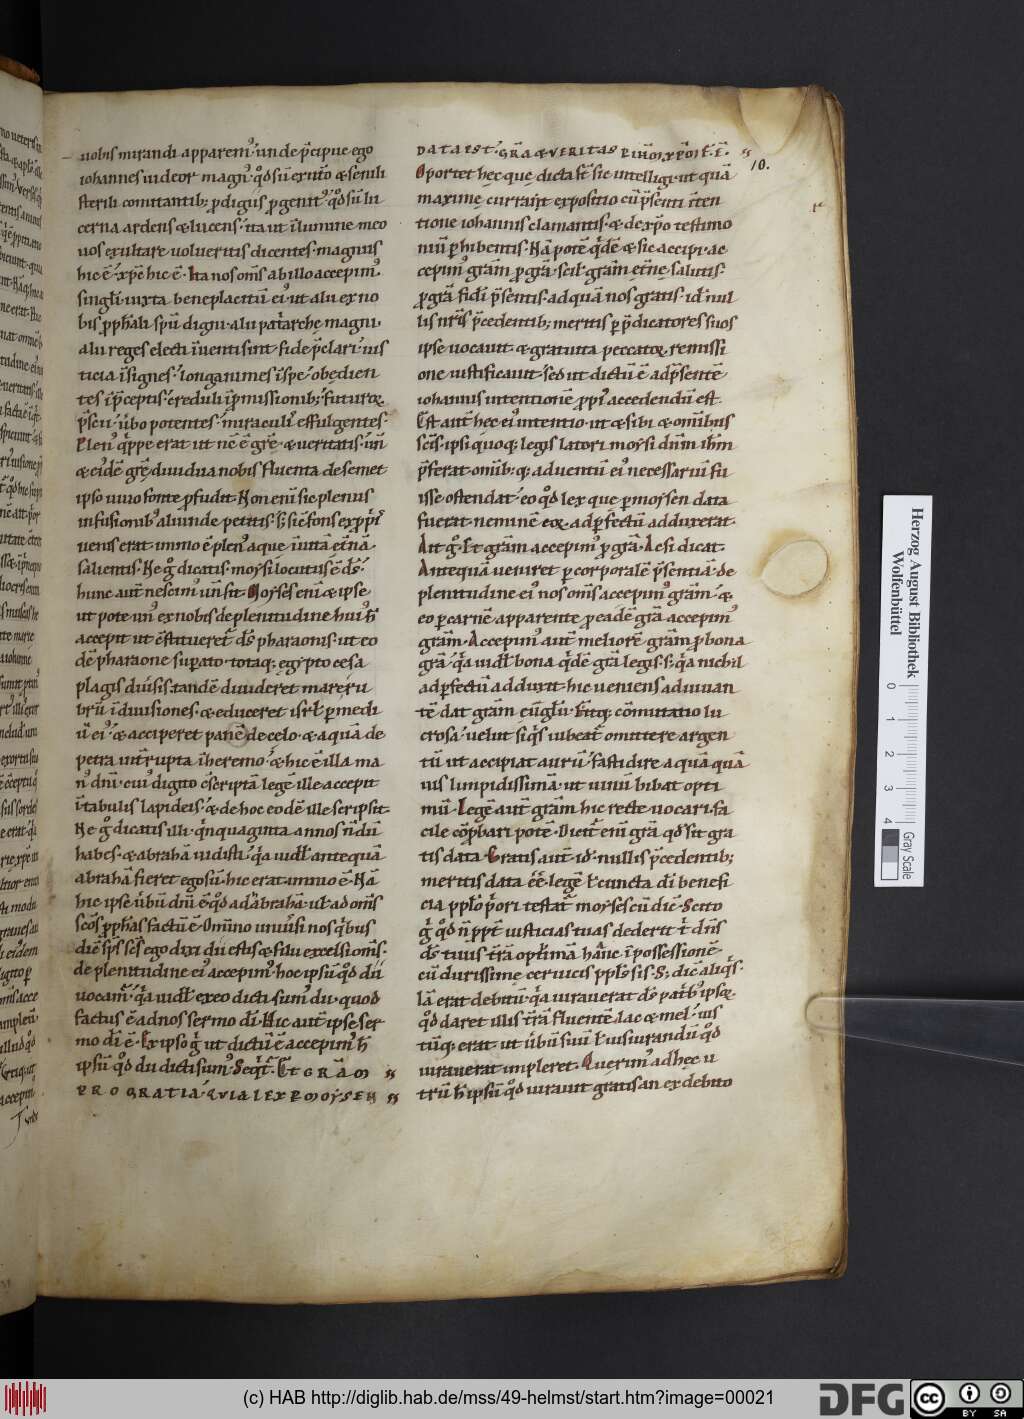 uobis mirandi apparem᷒ unde p̄cipue ego
iohannes uideor magn᷒ qđ sū exorto ⁊ senili
sterili comitantib; ꝓdigiis ꝓgenit᷒ qđ sū lu
cerna ardens ⁊ lucens ita ut ī lumine meo
uos exultare uolueritis dicentes magnus
hic ē xp̄c hic ē. Ita nos om̄s ab illo accepim᷒
singuli iuxta beneplacitū ei᷒ ut alii ex no
bis ꝓph̄ali sp̄u digni. alii pat̄arche magni.
alii reges electi īuenti sint. fide p̄clari. ius
ticia īsignes. longanimes ī spe. obedien
tes ī p̄ceptis. c̄reduli ī ꝓmissionib; futuroꝝ
p̄scii. ūbo potentes. miraculis effulgentes.
Plen᷒ q̄ppe erat ut nc̄ ē grē ⁊ ueritatis. un̄
⁊ eidē grē diuidua nobis fluenta de semet
ipso uiuo fonte ꝓfudit. Non enī sic plenus
infusionib᷒ aliunde petitis. s; sic fons ex ꝓpriis
ueniens erat. immo ē plen᷒ aque ī uitā etnā
salientis. Ne g̊ dicatis. moysi locutus ē dš.
hunc aut̄ nescim᷒ un̄ sit. Moyses enī ⁊ ipse
ut pote un᷒ ex nobis de plenitudine hui᷒ h̄
accepit ut c̄stitueret᷑ dš pharaonis. ut eo
dē pharaone supato. totaq; egypto cesa
plagis diūsis. tandē diuideret mare ru
brū ī diuisiones. ⁊ educeret isrl̄ p medi
ū ei᷒. ⁊ acciperet panē de celo. ⁊ aquā de
petra int̄rupta ī heremo. ⁊ hic ē illa ma
n᷒ dn̄i. cui᷒ digito c̄scriptā legē ille accepit
ī tabulis lapideis. ⁊ de hoc eodē ille scripsit.
Ne g̊ dicatis illi. qnquaginta annos n̄dū
habes. ⁊ abrahā uidisti. q̄a uidl̄ antequā
abrahā fieret ego sū. hic erat immo ē. Nā
hic ipse ūbū dn̄i ē qđ ad abrahā. ul̄ ad om̄s
scōs ꝓph̄as factū ē. Omīno uniūsi nos qbus
dic̄ sps scs ego dixi dii estis ⁊ filii excelsi om̄s.
de plenitudine ei᷒ accepim᷒ hoc ipsū qđ dii
uocam᷑. q̄a uidl̄ ex eo dicti sum᷒ dii. quod
factus ē ad nos sermo dī. Hic aut̄ ipse ser
mo dī ē. Ex ipso g̊ ut dictū ē accepim᷒ h̄
ipsū qđ dii dicti sum᷒. Seqt᷑. ET GRAM
PRO GRATIA. QVIA LEX P MOYSEN
DATA EST. GRA ⁊ VERITAS P IHM XPM F. E.
Oportet hec que dicta st̄ sic intelligi. ut quā
maxime currant expositio cū p̄senti īten
tione iohannis clamantis. ⁊ de xp̄o testimo
niū phibentis. Nā potē qdē ⁊ sic accipi. ac
cepim᷒ grām ꝓ grā. scil grām etnē salutis.
ꝓ grā fidī p̄sentis. ad quā nos gratis. id nul
lis nr̄is p̄cedentib; meritis p p̄dicatores suos
ipse uocauit. ⁊ gratuita peccatoꝝ remissi
one iustificauit. sed ut dictū ē ad p̄sentē
iohannis intentionē ꝓpi᷒ accedendū est.
Est aut̄ hec ei᷒ intentio. ut ⁊ sibi ⁊ omībus
scīs. ipsi quoq; legis latori moysi dn̄m ihm̄
p̄ferat omīb; q; aduentū ei᷒ necessariū fu
isse ostendat. eo qđ lex que p moysen data
fuerat. neminē eoꝝ ad pfectū adduxerat.
Ait g̊. Et grām accepim᷒ ꝓ grā. Ac si dicat.
Antequā ueniret p corporalē p̄sentiā. de
plenitudine ei᷒ nos om̄s accepim᷒ grām. ⁊
eo p carnē apparente ꝓ eadē grā accepim᷒
grām. Accepim᷒ aut̄ meliorē grām ꝓ bona
grā. q̄a uidl̄ bona qdē grā legis. s; q̄a nichil
ad pfectū adduxit. hic ueniens adiuuan
tē dat grām euglii. Estq; cōmutatio lu
crosa. uelut si qs iubeat omittere argen
tū ut accipiat aurū. fastidire aquā quā
uis limpidissimā. ut uinū bibat opti
mū. Legē aut̄ grām hic recte uocari. fa
cile cōprobari potē. Dicit᷑ enī grā qđ sit gra
tis data. Gratis aut̄ id nullis p̄cedentib;
meritis data ēē legē ul̄ cuncta dī benefi
cia pplo priori testat᷑ moyses cū dic̄. Scito
g̊ qđ n̄ ꝓpt̄ iusticias tuas dederit t̄ dn̄s
dš tuus trā optimā hanc ī possessionē.
cū durissime ceruicis ppls sis. S; dic̄ aliqs.
lā erat debitū. q̄a iurauerat dš patrib᷒ ipsoꝝ.
qđ daret illis trā fluentē lac ⁊ mel. ius
tūq; erat ut ūbū suū ul̄ iusiurandū qđ
iurauerat impleret. Querim᷒ adhec u
trū h̄ ipsū qđ iurauit gratis an ex debito
10.
Herzog August Bibliothek
Wolfenbüttel
0 1 2 3 4
Gray Scale
(c) HAB http://diglib.hab.de/mss/49-helmst/start.htm?image=00021
DFG
cc
BY SA